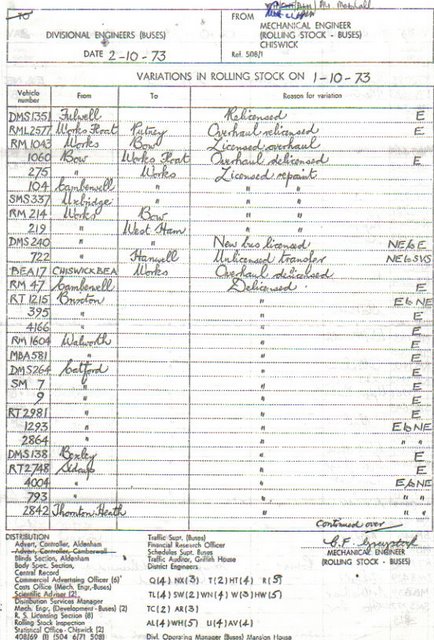 TO
DIVISIONAL ENGINEERS (BUSES)
DATE 2-10-73
FROM
MECHANICAL ENGINEER
(ROLLING STOCK - BUSES)
CHISWICK
Ref. 508/1
VARIATIONS IN ROLLING STOCK ON 1-10-73
Vehicle number From To Reason for variation
DMS1351 Fulwell Relicensed E
RML2577 Works Float Putney Overhaul relicensed E
RM 1043 Works Bow Licensed overhaul
1060 Bow Works Float Overhaul delicensed E
275 " Works Licensed repaint
104 Camberwell " " "
SMS337 Uxbridge " " "
RM 214 Works Bow " "
219 " West Ham " "
DMS240 " " New bus licensed NE6E
722 " Hanwell Unlicensed transfer NE6SVS
BEA17 CHISWICK BEA Works Overhaul delicensed
RM 47 Camberwell Delicensed E
RT 1215 Brixton " E6NE
395 " " E
4166 " " E
RM 1604 Walworth " E
MBA581 " " E
DMS264 Catford " E
SM 7 " " E
9 " " E
RT 2981 " " E
1293 " " E6NE
2864 " " " "
DMS138 Bexley " E
RT2748 Sidcup " E
4004 " " E6NE
793 " " " "
2842 Thornton Heath " E
Continued over
DISTRIBUTION
Advert, Controller, Aldenham
Advert, Controller, Camberwell
Blinds Section, Aldenham
Body Spec. Section,
Central Record
Commercial Advertising Officer (6)
Cars Office (Mech. Engr.-Buses)
Scientific Adviser (2)
Distribution Services Manager
Mech. Engr, (Development - Buses) (2)
R. S. Licensing Section (8)
Rolling Stock Inspection
Statistical Office - Chiswick (2)
408/69 (1) (504 6/71 508)
Traffic Supt. (Buses)
Financial Research Officer
Schedules Supt. Buses
Traffic Auditor, Griffith House
District Engineers
Q(4) NX(3) T(2) HT(4) R(5)
TL(4) SW(2) WN(4) W(3) HW(5)
TC(2) AR(3)
AL(4) WH(5) U(4) AV(4)
Divl. Operating Manager (Buses) Mansion House
MECHANICAL ENGINEER
(ROLLING STOCK - BUSES)